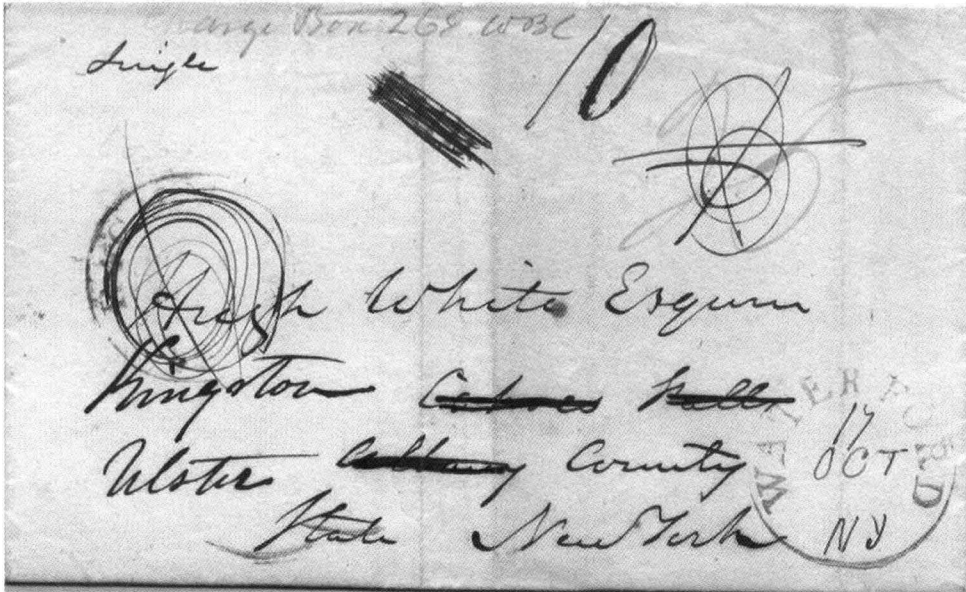 Charge Box 268 WBC
Single
10
Hugh White Esquire
Kingston Cohoes Falls
Ulster Albany County
State New York
WATERFORD
17
OCT
NY